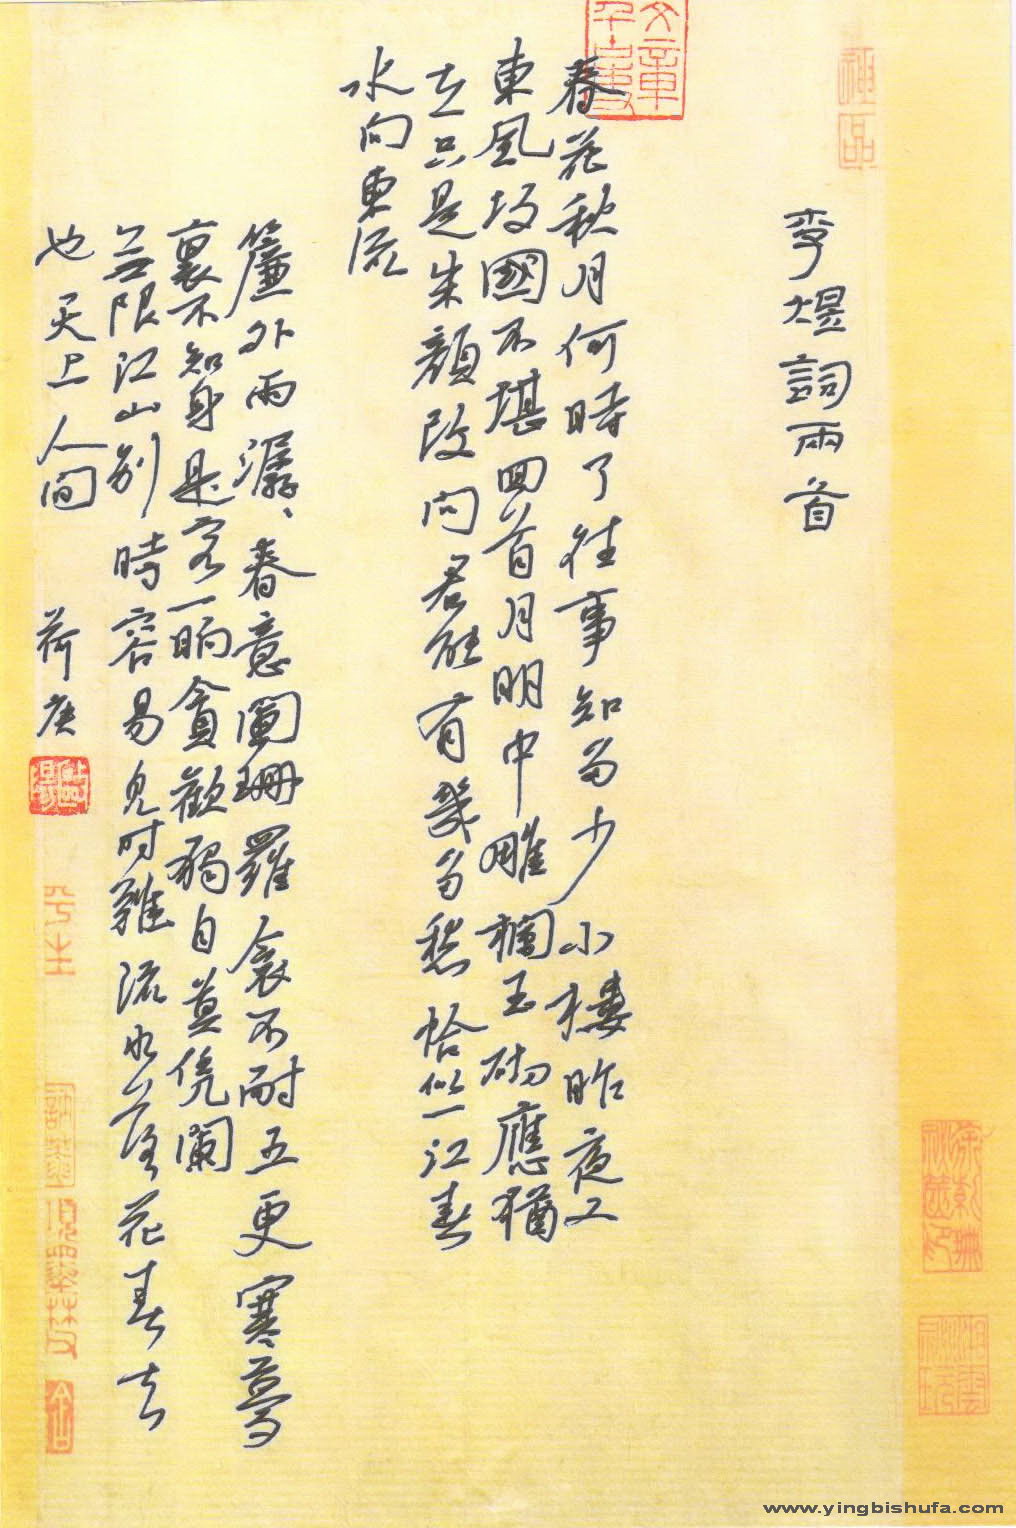 李煜詞兩首
春花秋月何時了往事知多少小樓昨夜又
東風故國不堪回首月明中雕欄玉砌應猶
在只是朱顏改問君能有幾多愁恰似一江春
水向東流
簾外雨潺、春意闌珊羅衾不耐五更寒夢
裏不知身是客一晌貪歡獨自莫凭闌
無限江山別時容易見時難流水落花春去
也天上人間 荷庚
文章千古事
神品
平生
www.yingbishufa.com